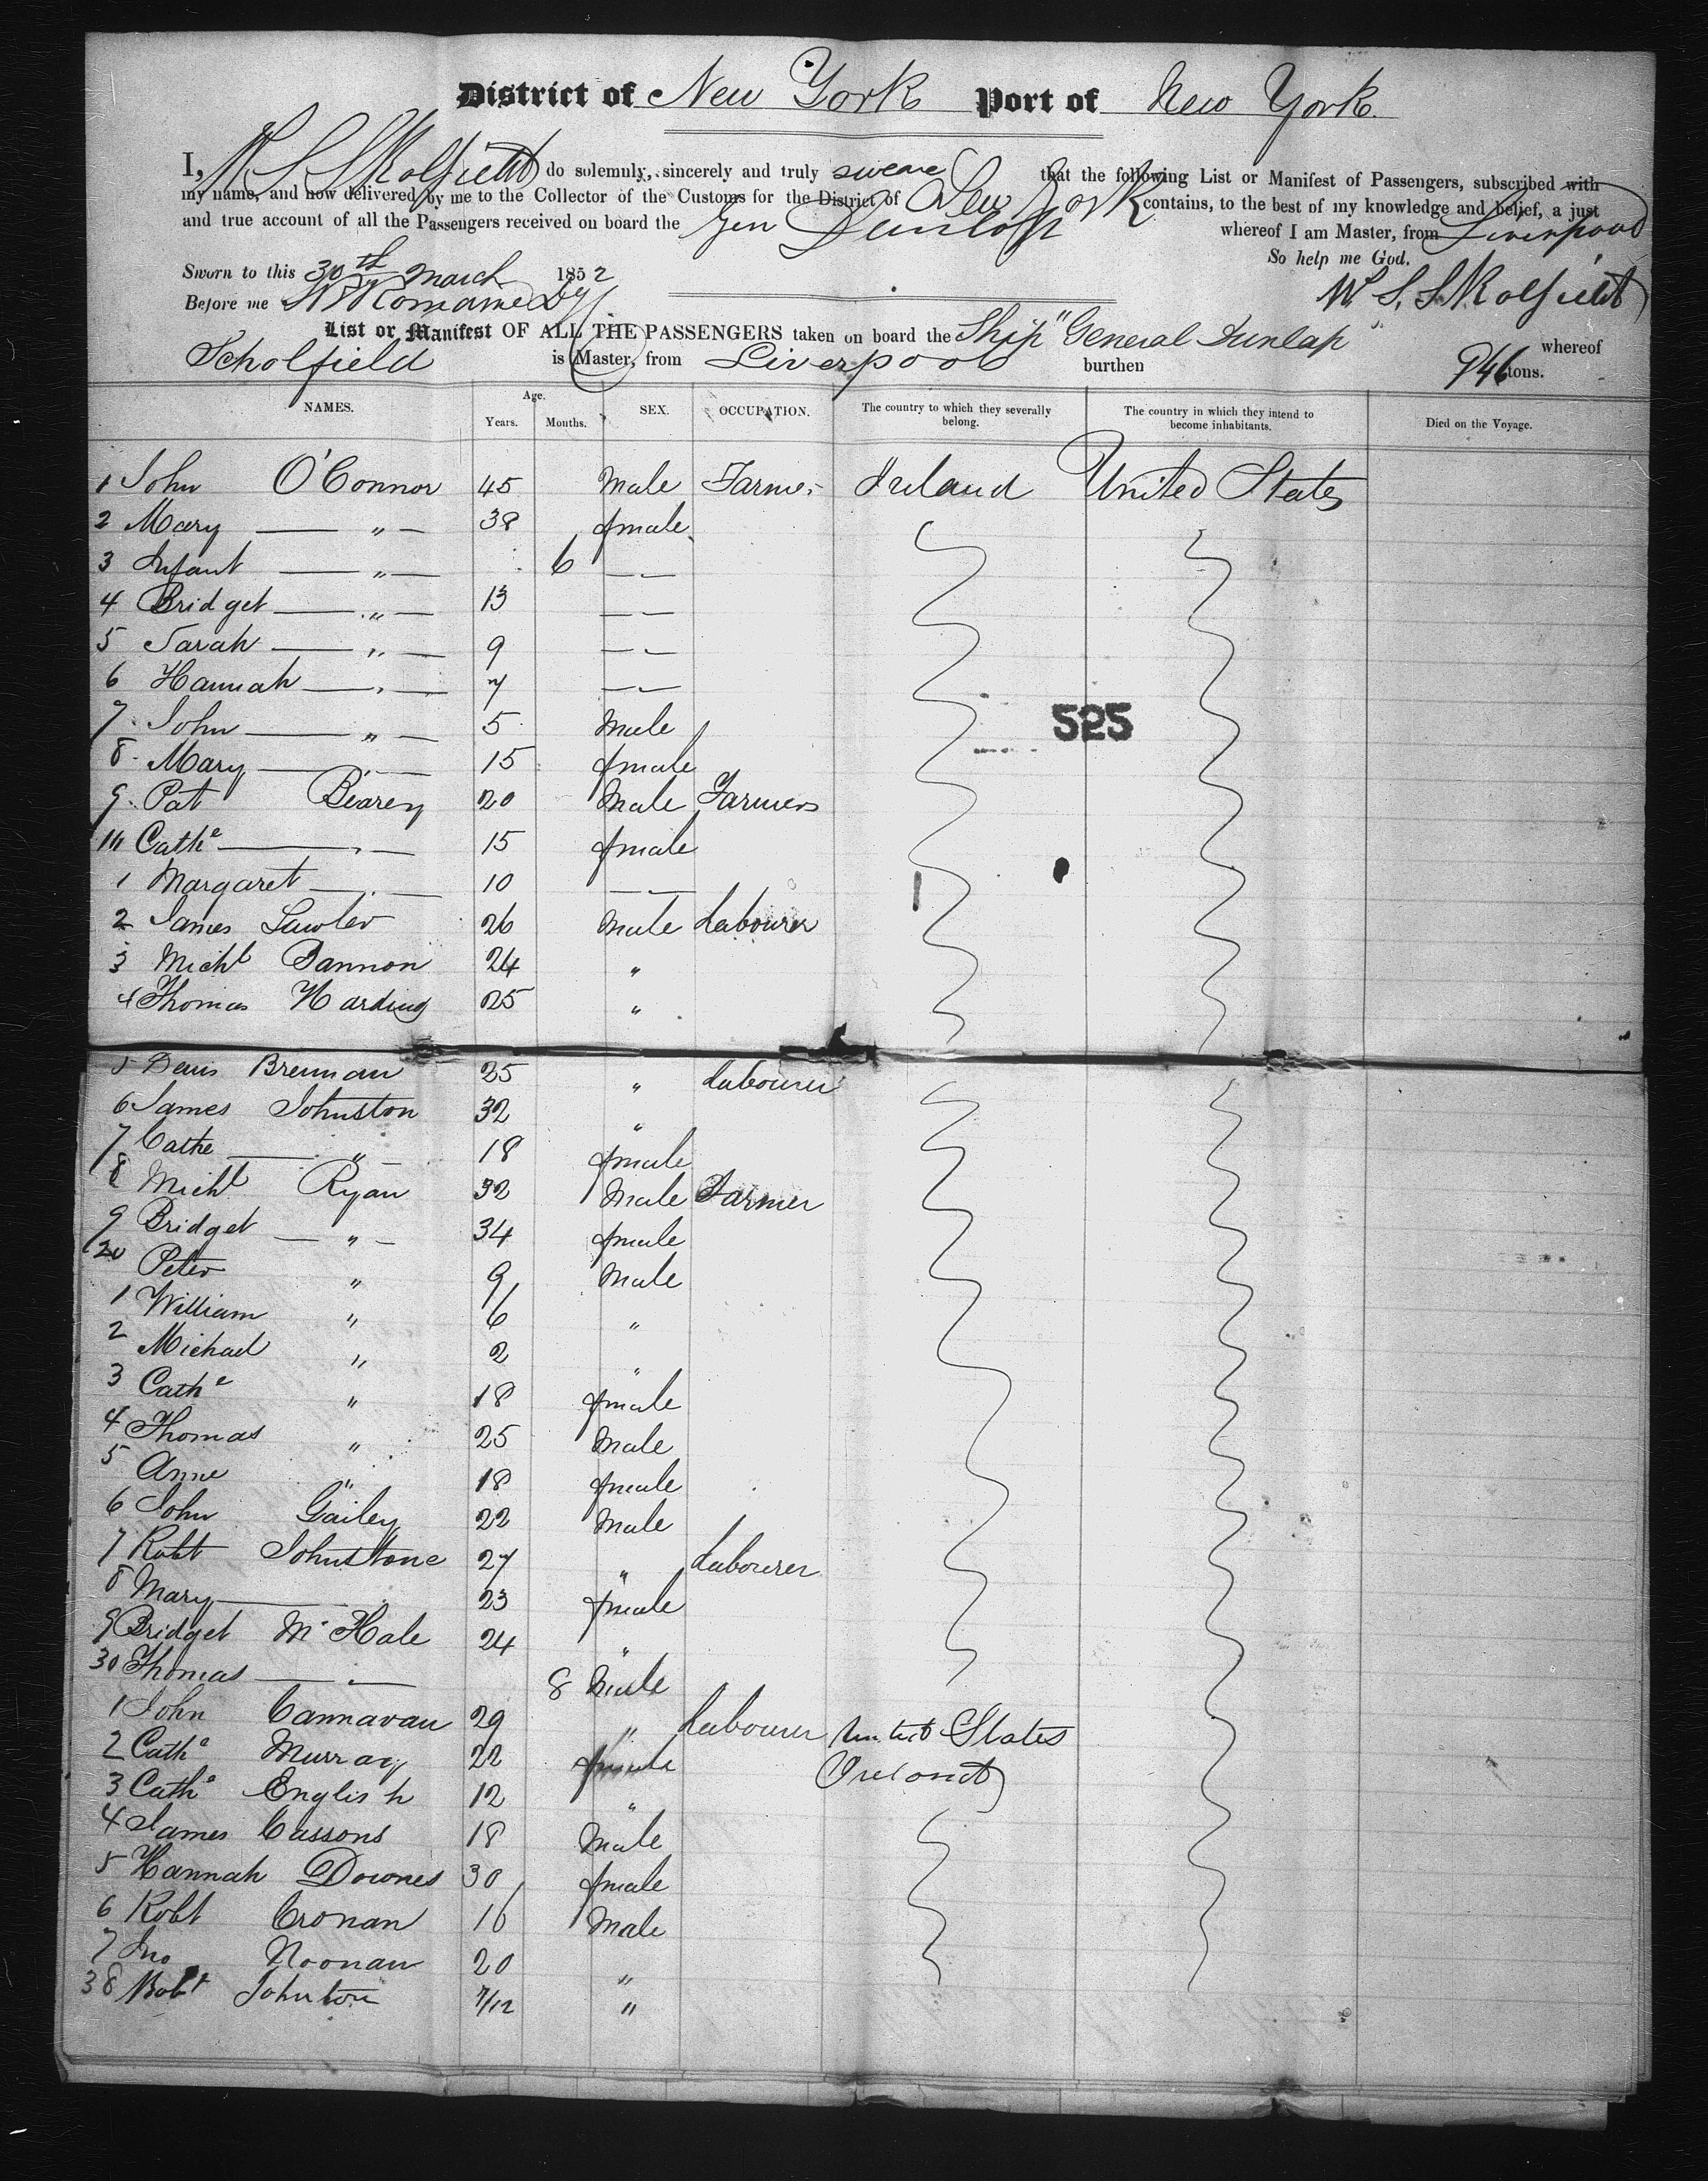 District of New York Port of New York.
I, W S Skolfield do solemnly, sincerely and truly swear that the following List or Manifest of Passengers, subscribed with
my name, and now delivered by me to the Collector of the Customs for the District of New York contains, to the best of my knowledge and belief, a just
and true account of all the Passengers received on board the Gen Dunlap whereof I am Master, from Liverpool
So help me God.
Sworn to this 30th March 1852
W S Skolfield
Before me
List or Manifest OF ALL THE PASSENGERS taken on board the Ship "General Dunlap" whereof
Scholfield is Master, from Liverpool burthen 946 tons.
NAMES. Age. Years. Months. SEX. OCCUPATION. The country to which they severally belong. The country in which they intend to become inhabitants. Died on the Voyage.
1 John O'Connor 45 Male Farmer Ireland United States
2 Mary — " — 38 female
3 Infant — " — 6 — —
4 Bridget — " — 13 — —
5 Sarah — " — 9 — —
6 Hannah — " — 7 — —
525
7 John — " — 5 Male
8 Mary — " — 15 female
9 Pat Bearey 20 Male Farmers
10 Cathe — " — 15 female
1 Margaret — " — 10 — —
2 James Lawler 26 Male Labourer
3 Michl Bannon 24 "
4 Thomas Harding 25 "
5 Denis Brennan 25 " Labourer
6 James Johnston 32 "
7 Cathe — " — 18 female
8 Michl Ryan 32 Male Farmer
9 Bridget — " — 34 female
20 Peter " 9 Male
1 William " 6 "
2 Michael " 2 "
3 Cathe " 18 female
4 Thomas " 25 Male
5 Anne " 18 female
6 John Gailey 22 Male
7 Robt Johnstone 27 " Labourer
8 Mary — " 23 female
9 Bridget McHale 24 "
30 Thomas — " — 8 Male
1 John Cannavan 29 " Labourer United States
2 Cathe Murray 22 female Ireland
3 Cathe English 12 "
4 James Cassons 18 Male
5 Hannah Downes 30 female
6 Robt Cronan 16 Male
7 Jno Noonan 20 "
38 Robt Johnston 7/12 "